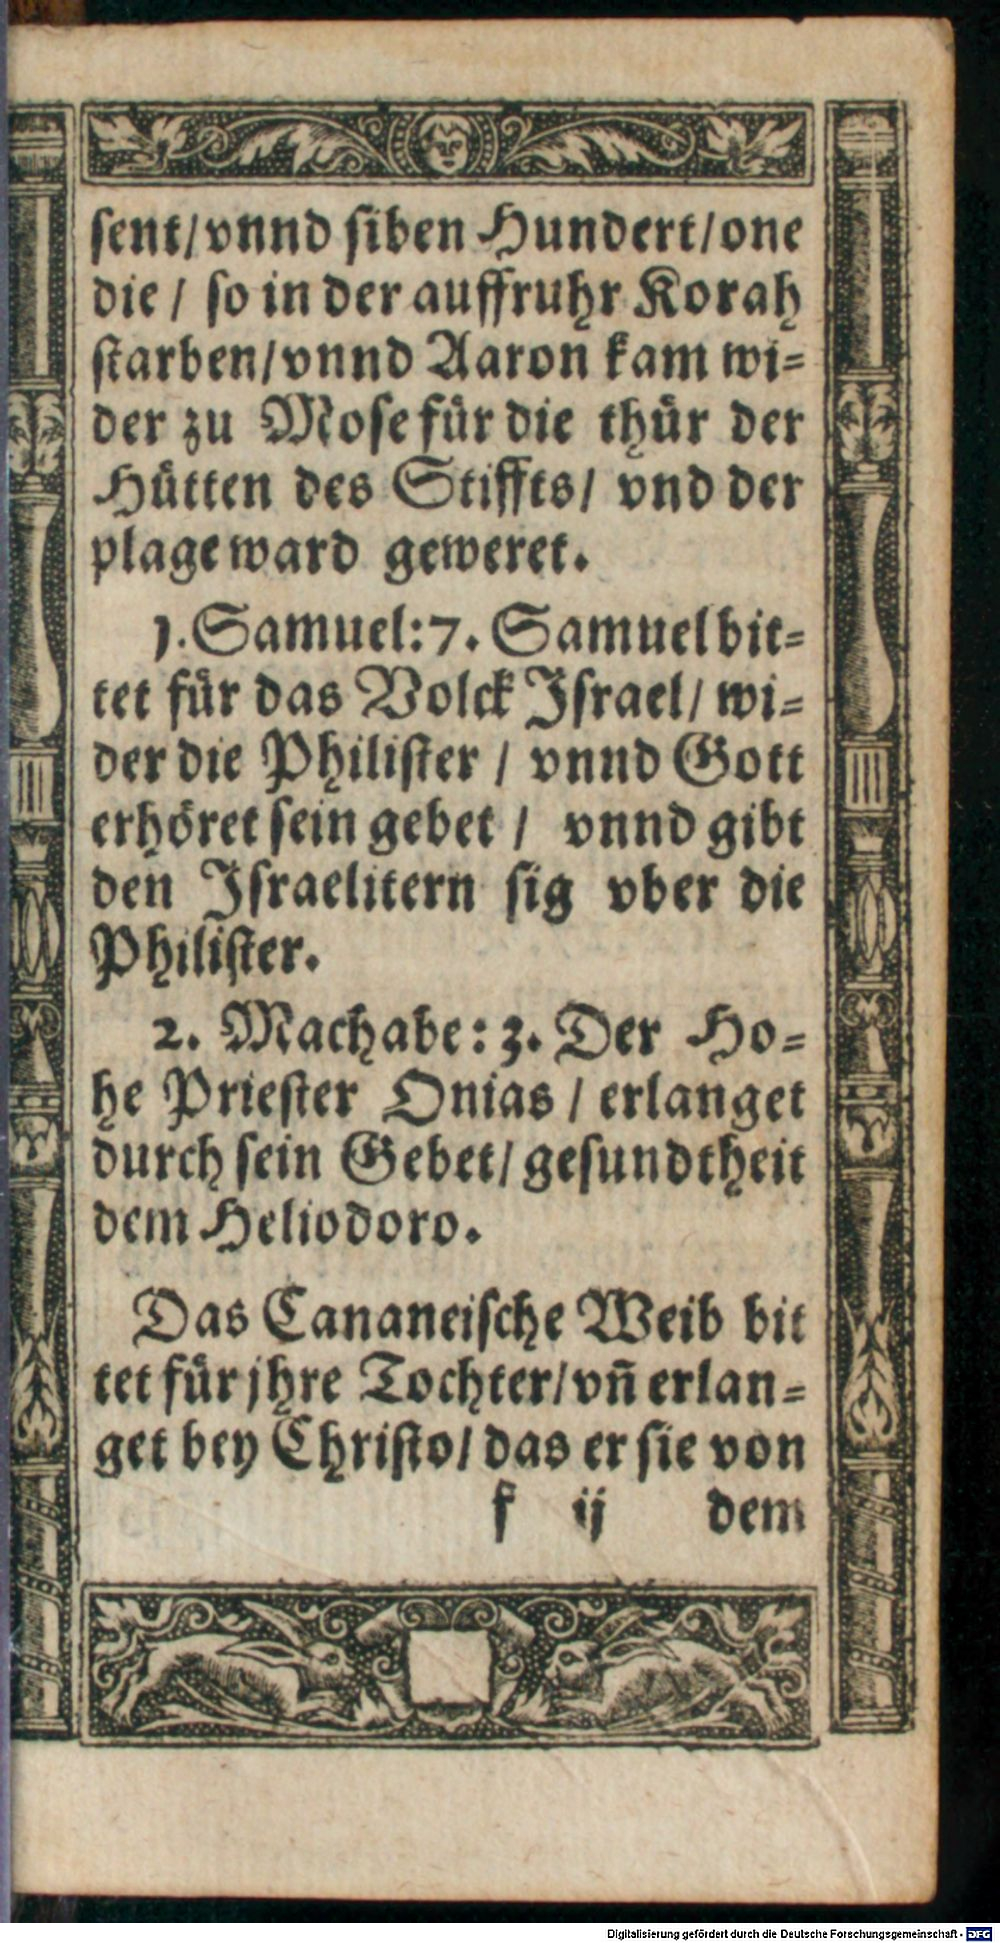 sent/vnnd siben Hundert/one
die / so in der auffruhr Korah
starben/vnnd Aaron kam wi=
der zu Mose für die thür der
Hütten des Stiffts/ vnd der
plage ward geweret.
1. Samuel: 7. Samuel bit=
tet für das Volck Israel/ wi=
der die Philister / vnnd Gott
erhöret sein gebet / vnnd gibt
den Israelitern sig vber die
Philister.
2. Machabe: 3. Der Ho=
he Priester Onias / erlanget
durch sein Gebet/ gesundtheit
dem Heliodoro.
Das Cananeische Weib bit
tet für jhre Tochter/vn̄ erlan=
get bey Christo/ das er sie von
f ij dem
Digitalisierung gefördert durch die Deutsche Forschungsgemeinschaft - DFG